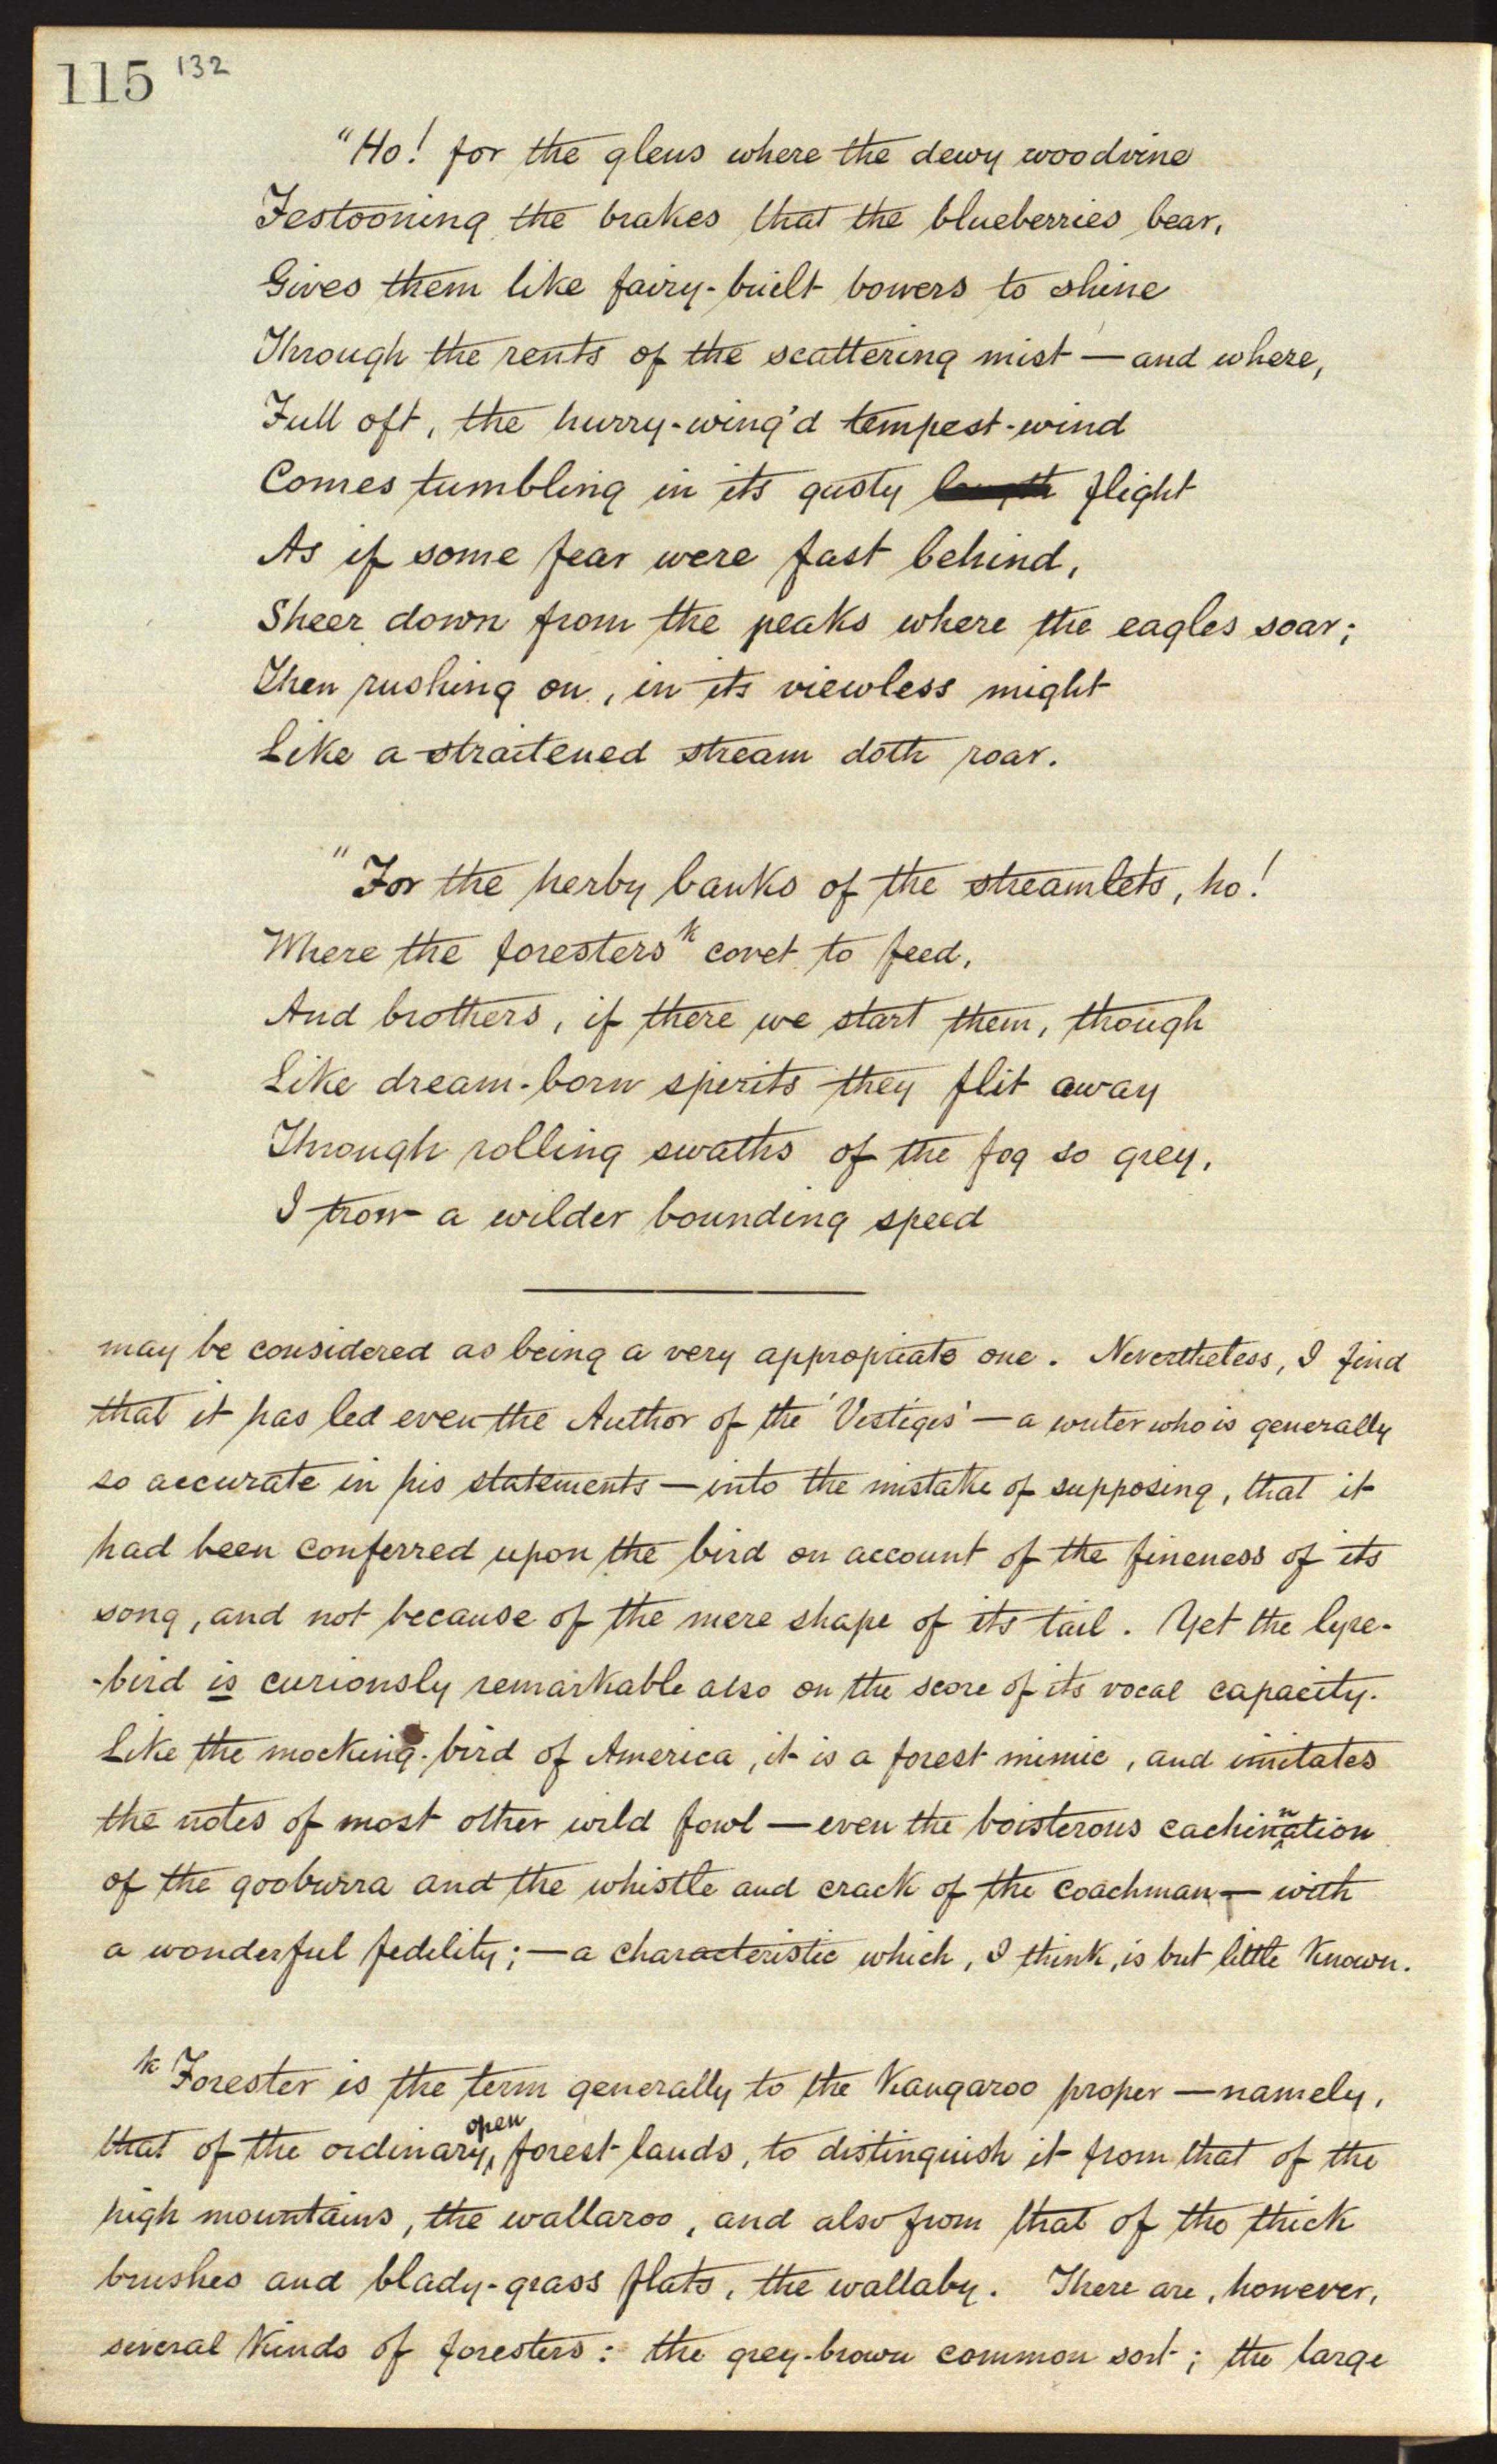 115 132
"Ho! for the glens where the dewy woodvine
Festooning the brakes that the blueberries bear,
Gives them like fairy-built bowers to shine
Through the rents of the scattering mist — and where,
Full oft, the hurry-wing'd tempest-wind
Comes tumbling in its gusty flight
As if some fear were fast behind,
Sheer down from the peaks where the eagles soar;
Then rushing on, in its viewless might
Like a straitened stream doth roar.
"For the herby banks of the streamlets, ho!
Where the foresters k covet to feed,
And brothers, if there we start them, though
Like dream-born spirits they flit away
Through rolling swaths of the fog so grey,
I trow a wilder bounding speed
may be considered as being a very appropriate one. Nevertheless, I find
that it has led even the Author of the 'Vestiges' — a writer who is generally
so accurate in his statements — into the mistake of supposing, that it
had been conferred upon the bird on account of the fineness of its
song, and not because of the mere shape of its tail. Yet the lyre-
-bird is curiously remarkable also on the score of its vocal capacity.
Like the mocking-bird of America, it is a forest mimic, and imitates
the notes of most other wild fowl — even the boisterous cachinnation
of the gooburra and the whistle and crack of the coachman — with
a wonderful fidelity; — a characteristic which, I think, is but little known.
k Forester is the term generally to the Kangaroo proper — namely,
that of the ordinary, open forest lands, to distinguish it from that of the
high mountains, the wallaroo, and also from that of the thick
brushes and blady-grass flats, the wallaby. There are, however,
several kinds of foresters: the grey-brown common sort; the large